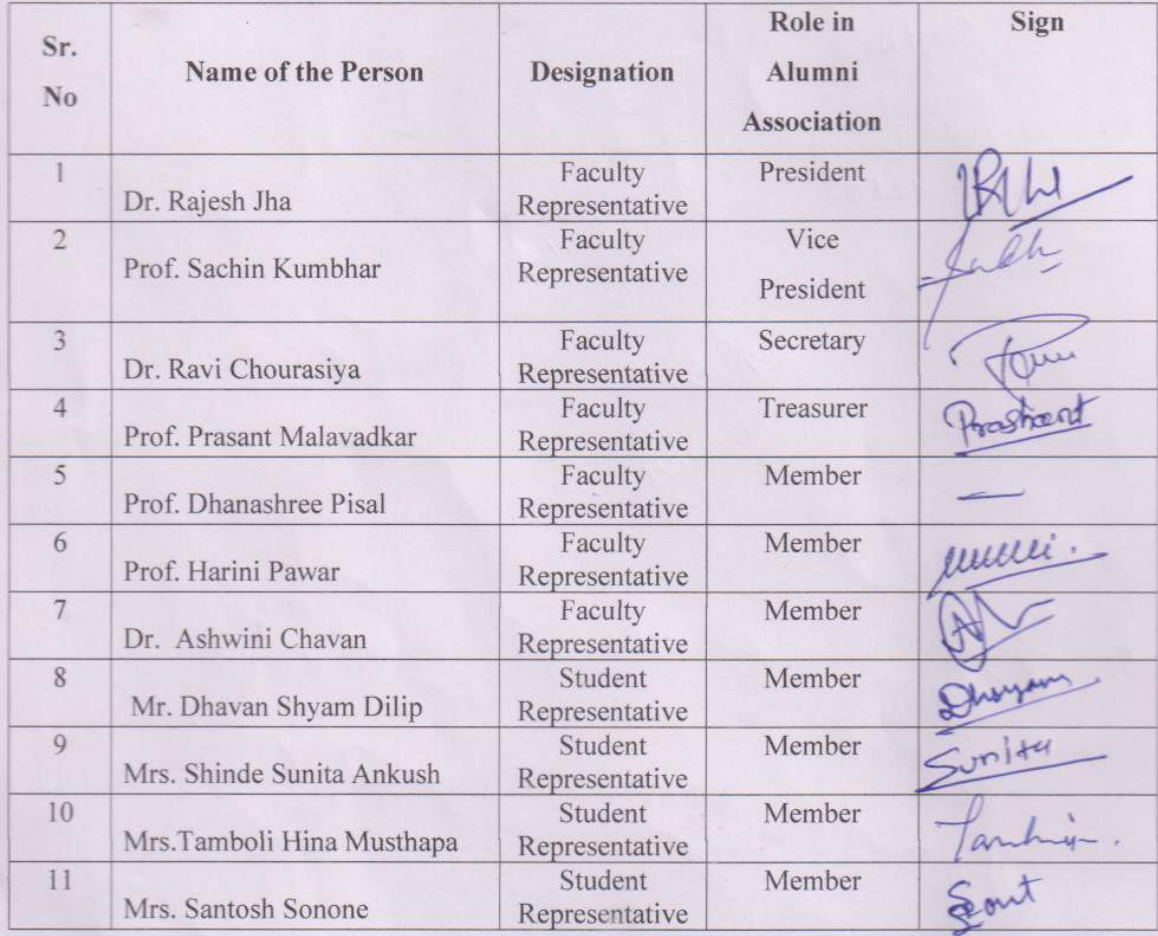 Sr.
No
Name of the Person
Designation
Role in
Alumni
Association
Sign
1
Dr. Rajesh Jha
Faculty
Representative
President
2
Prof. Sachin Kumbhar
Faculty
Representative
Vice
President
3
Dr. Ravi Chourasiya
Faculty
Representative
Secretary
4
Prof. Prasant Malavadkar
Faculty
Representative
Treasurer
Prashant
5
Prof. Dhanashree Pisal
Faculty
Representative
Member
—
6
Prof. Harini Pawar
Faculty
Representative
Member
7
Dr. Ashwini Chavan
Faculty
Representative
Member
8
Mr. Dhavan Shyam Dilip
Student
Representative
Member
9
Mrs. Shinde Sunita Ankush
Student
Representative
Member
Sunita
10
Mrs.Tamboli Hina Musthapa
Student
Representative
Member
11
Mrs. Santosh Sonone
Student
Representative
Member